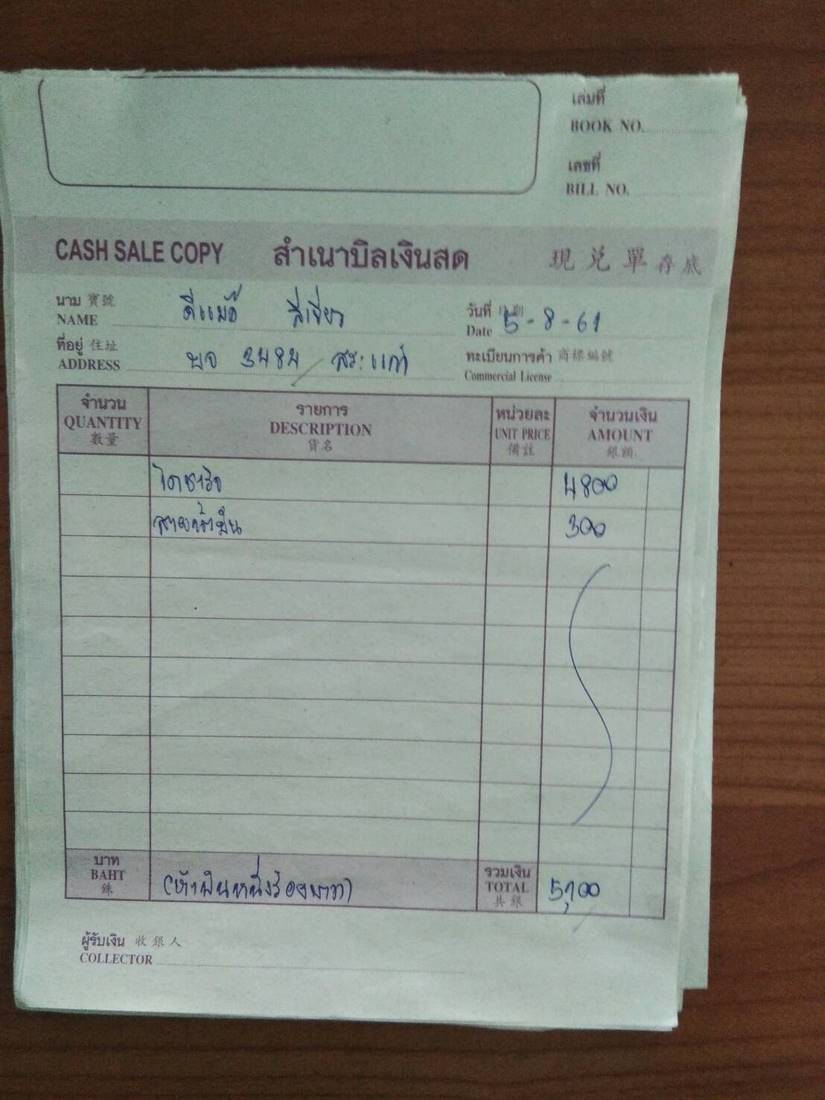 เล่มที่
BOOK NO.
เลขที่
BILL NO.
CASH SALE COPY สำเนาบิลเงินสด 現兌單存底
นาม 寶號
NAME ดีแม็ก สี่เขียว
วันที่
Date 5-8-61
ที่อยู่ 住址
ADDRESS บจ 3484 สระแก้ว
ทะเบียนการค้า 商標編號
Commercial License
จำนวน รายการ หน่วยละ จำนวนเงิน
QUANTITY DESCRIPTION UNIT PRICE AMOUNT
數量 貨名 備註 銀額
ไดชาร์จ 4800
สายน้ำมัน 300
บาท รวมเงิน
BAHT (ห้าพันหนึ่งร้อยบาท) TOTAL 5,100
銖 共銀
ผู้รับเงิน 收銀人
COLLECTOR